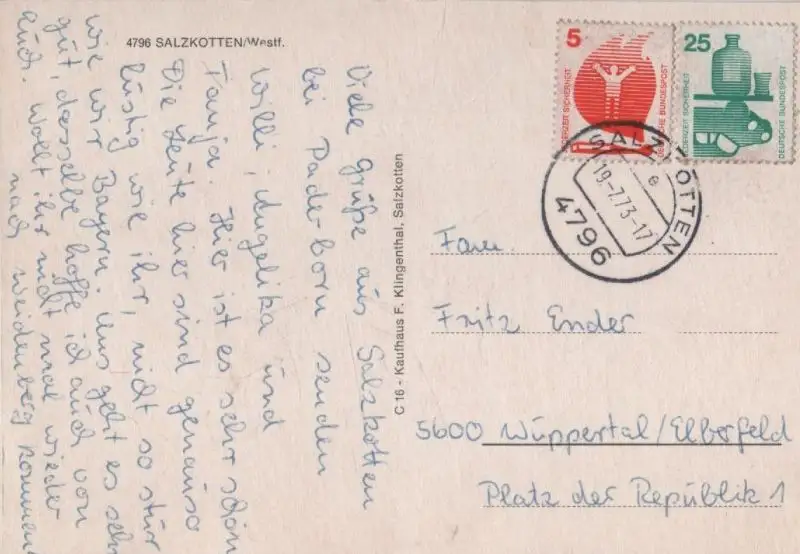 4796 SALZKOTTEN/Westf.
Viele Grüße aus Salzkotten
bei Paderborn senden
Willi, Angelika und
Tanja. Hier ist es sehr schön
Die Leute hier sind genauso
lustig wie ihr, nicht so stur
wie wir Bayern. Uns geht es sehr
gut, dasselbe hoffe ich auch von
Euch. Wollt ihr nicht mal wieder
nach Weidenberg kommen
C 16 - Kaufhaus F. Klingenthal, Salzkotten
5
JEDERZEIT SICHERHEIT
DEUTSCHE BUNDESPOST
25
JEDERZEIT SICHERHEIT
DEUTSCHE BUNDESPOST
SALZKOTTEN
e
19.-7.73-17
4796
Fam.
Fritz Ender
5600 Wuppertal/Elberfeld
Platz der Republik 1